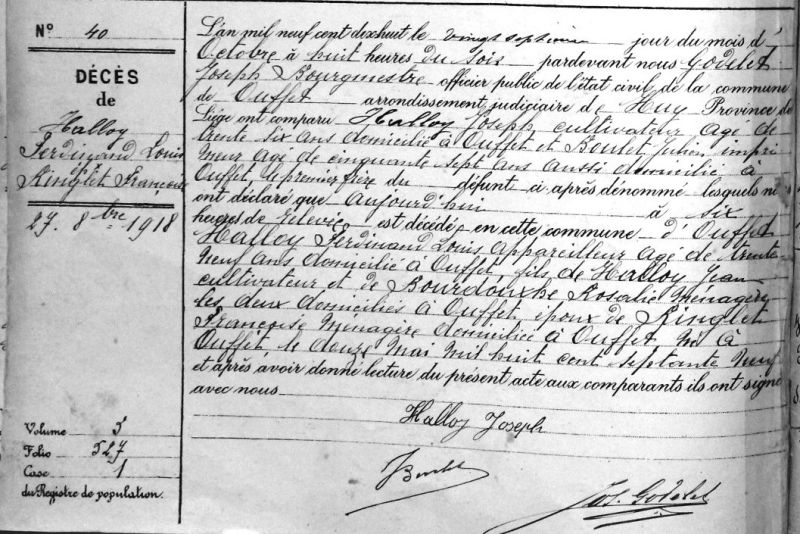 No 40
DÉCÈS
de
Halloy
Ferdinand Louis
Ringlet Françoise
27. 8bre 1918
Volume 5
Folio 527
Case 1
du Registre de population.
L'an mil neuf cent dixhuit le vingt septième jour du mois d'
Octobre à huit heures du soir pardevant nous Godelet
Joseph Bourgmestre officier public de l'état civil de la commune
de Ouffet arrondissement judiciaire de Huy Province de
Liége ont comparu Halloy Joseph, cultivateur âgé de
trente six ans domicilié à Ouffet et Boulet Julien impri
meur âgé de cinquante sept ans aussi domicilié à
Ouffet, le premier frère du défunt ci après dénommé lesquels
ont déclaré que aujourd'hui à six
heures de est décédé en cette commune d'Ouffet
Halloy Ferdinand Louis appareilleur âgé de trente
neuf ans domicilié à Ouffet, fils de Halloy Jean
cultivateur et de Bourdouxhe Rosalie ménagère
les deux domiciliés à Ouffet, époux de Ringlet
Françoise ménagère domiciliée à Ouffet, né à
Ouffet, le douze mai mil huit cent septante neuf
et après avoir donné lecture du présent acte aux comparants ils ont signé
avec nous
Halloy Joseph
JBoulet
Jos. Godelet